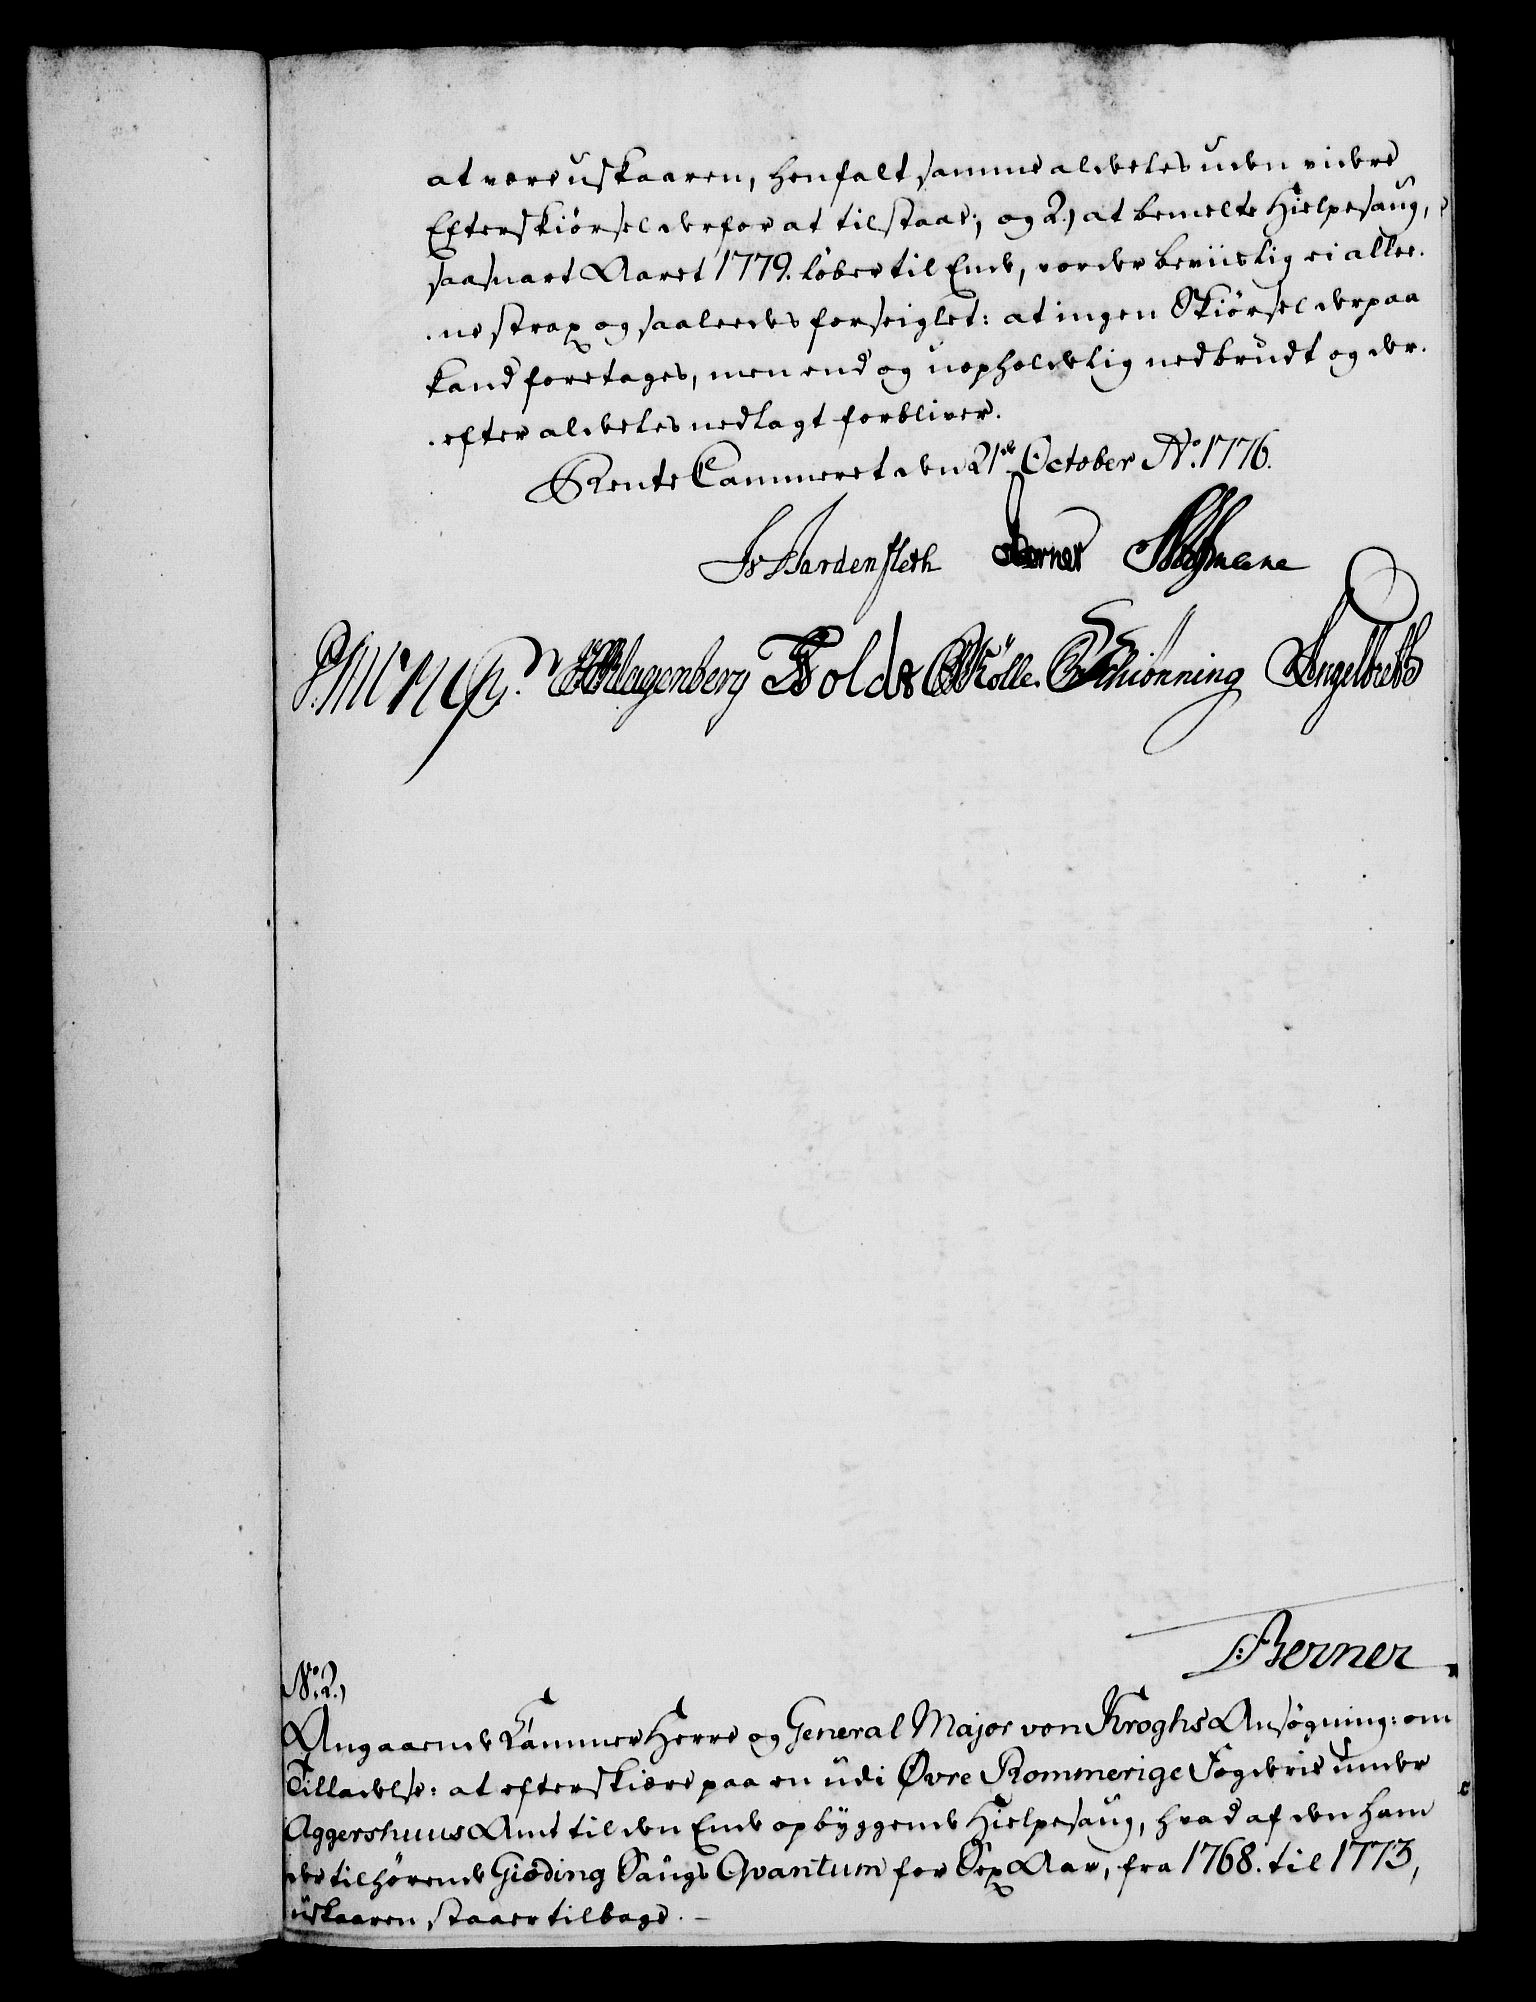 at være uskaaren, henfalt samme aldeles uden videre
Efterskiørsel derfor at tilstaae; og 2.) at bemelte Hielpesaug,
saasnart Aaret 1779. løber til Ende, vorder beviislig ei allee-
-ne strax og saaledes forseiglet: at ingen Skiørsel derpaa
kand foretages, men end og uopholdelig nedbrudt og der-
-efter aldeles nedlagt forbliver.
Rente Cammeret den 21de October Ao. 1776.
Js Hardenfleth Berner
Klagenberg Kølle. Schiønning Engelbreth
Berner
No. 2.)
Angaaende Kammer Herre og General Major von Kroghs Ansøgning: om
Tilladelse: at efterskiære paa en udi Øvre Rommerige Fogderie under
Aggershuus Amt til den Ende opbyggende Hielpesaug, hvad af den ham
der tilhørende Giøding Saugs Qvantum for Sex Aar, fra 1768. til 1773,
uskaaren staaer tilbage. –